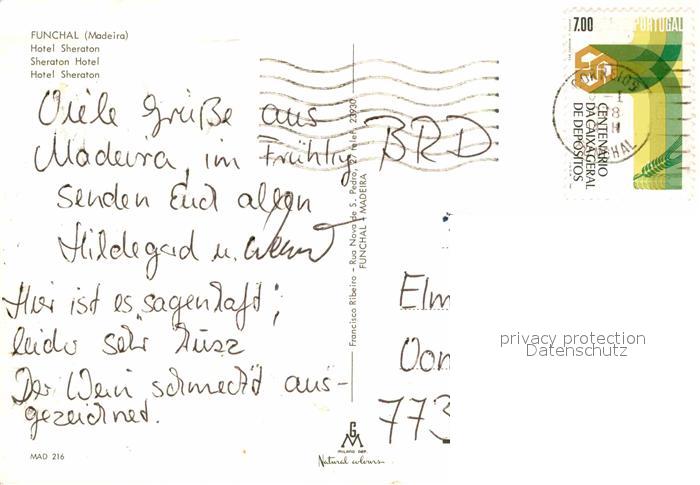 FUNCHAL (Madeira)
Hotel Sheraton
Sheraton Hotel
Hotel Sheraton
Viele Grüße aus
Madeira, im Frühling
senden Euch allen
Hildegard u.
Hier ist es "sagenhaft",
leider sehr kurz
Der Wein schmeckt aus-
gezeichnet.
MAD 216
Francisco Ribeiro - Rua Nova de S. Pedro, 27 Telef. 23930
FUNCHAL - MADEIRA
GM
MILANO DEP.
Natural colours
7.00 PORTUGAL
CENTENÁRIO
DA CAIXA GERAL
DE DEPÓSITOS
CORREIOS
BRD
Elm
Don
773
privacy protection
Datenschutz